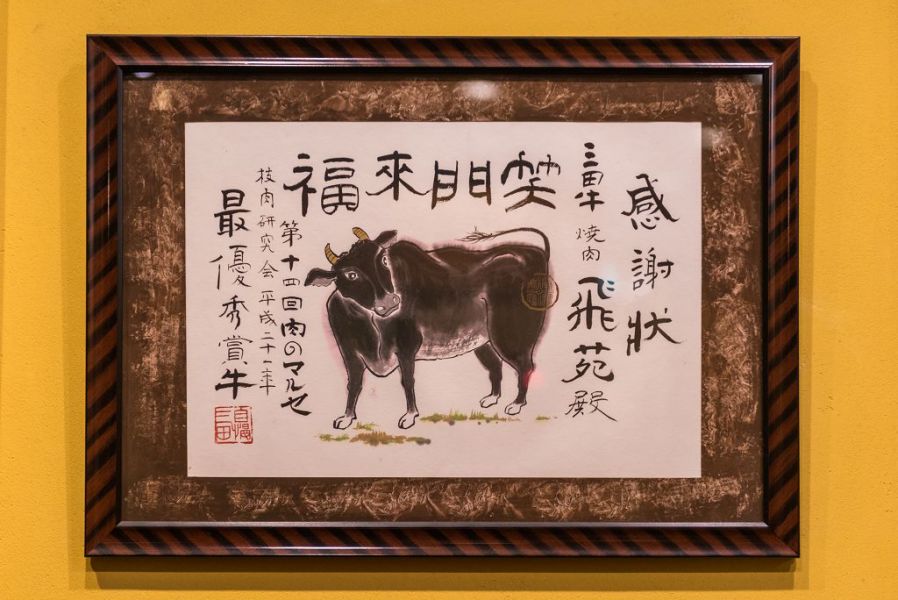 感謝状
三田牛 焼肉 飛苑殿
笑門來福
第十四回肉のマルセ
枝肉研究会 平成二十一年
最優秀賞牛
三田